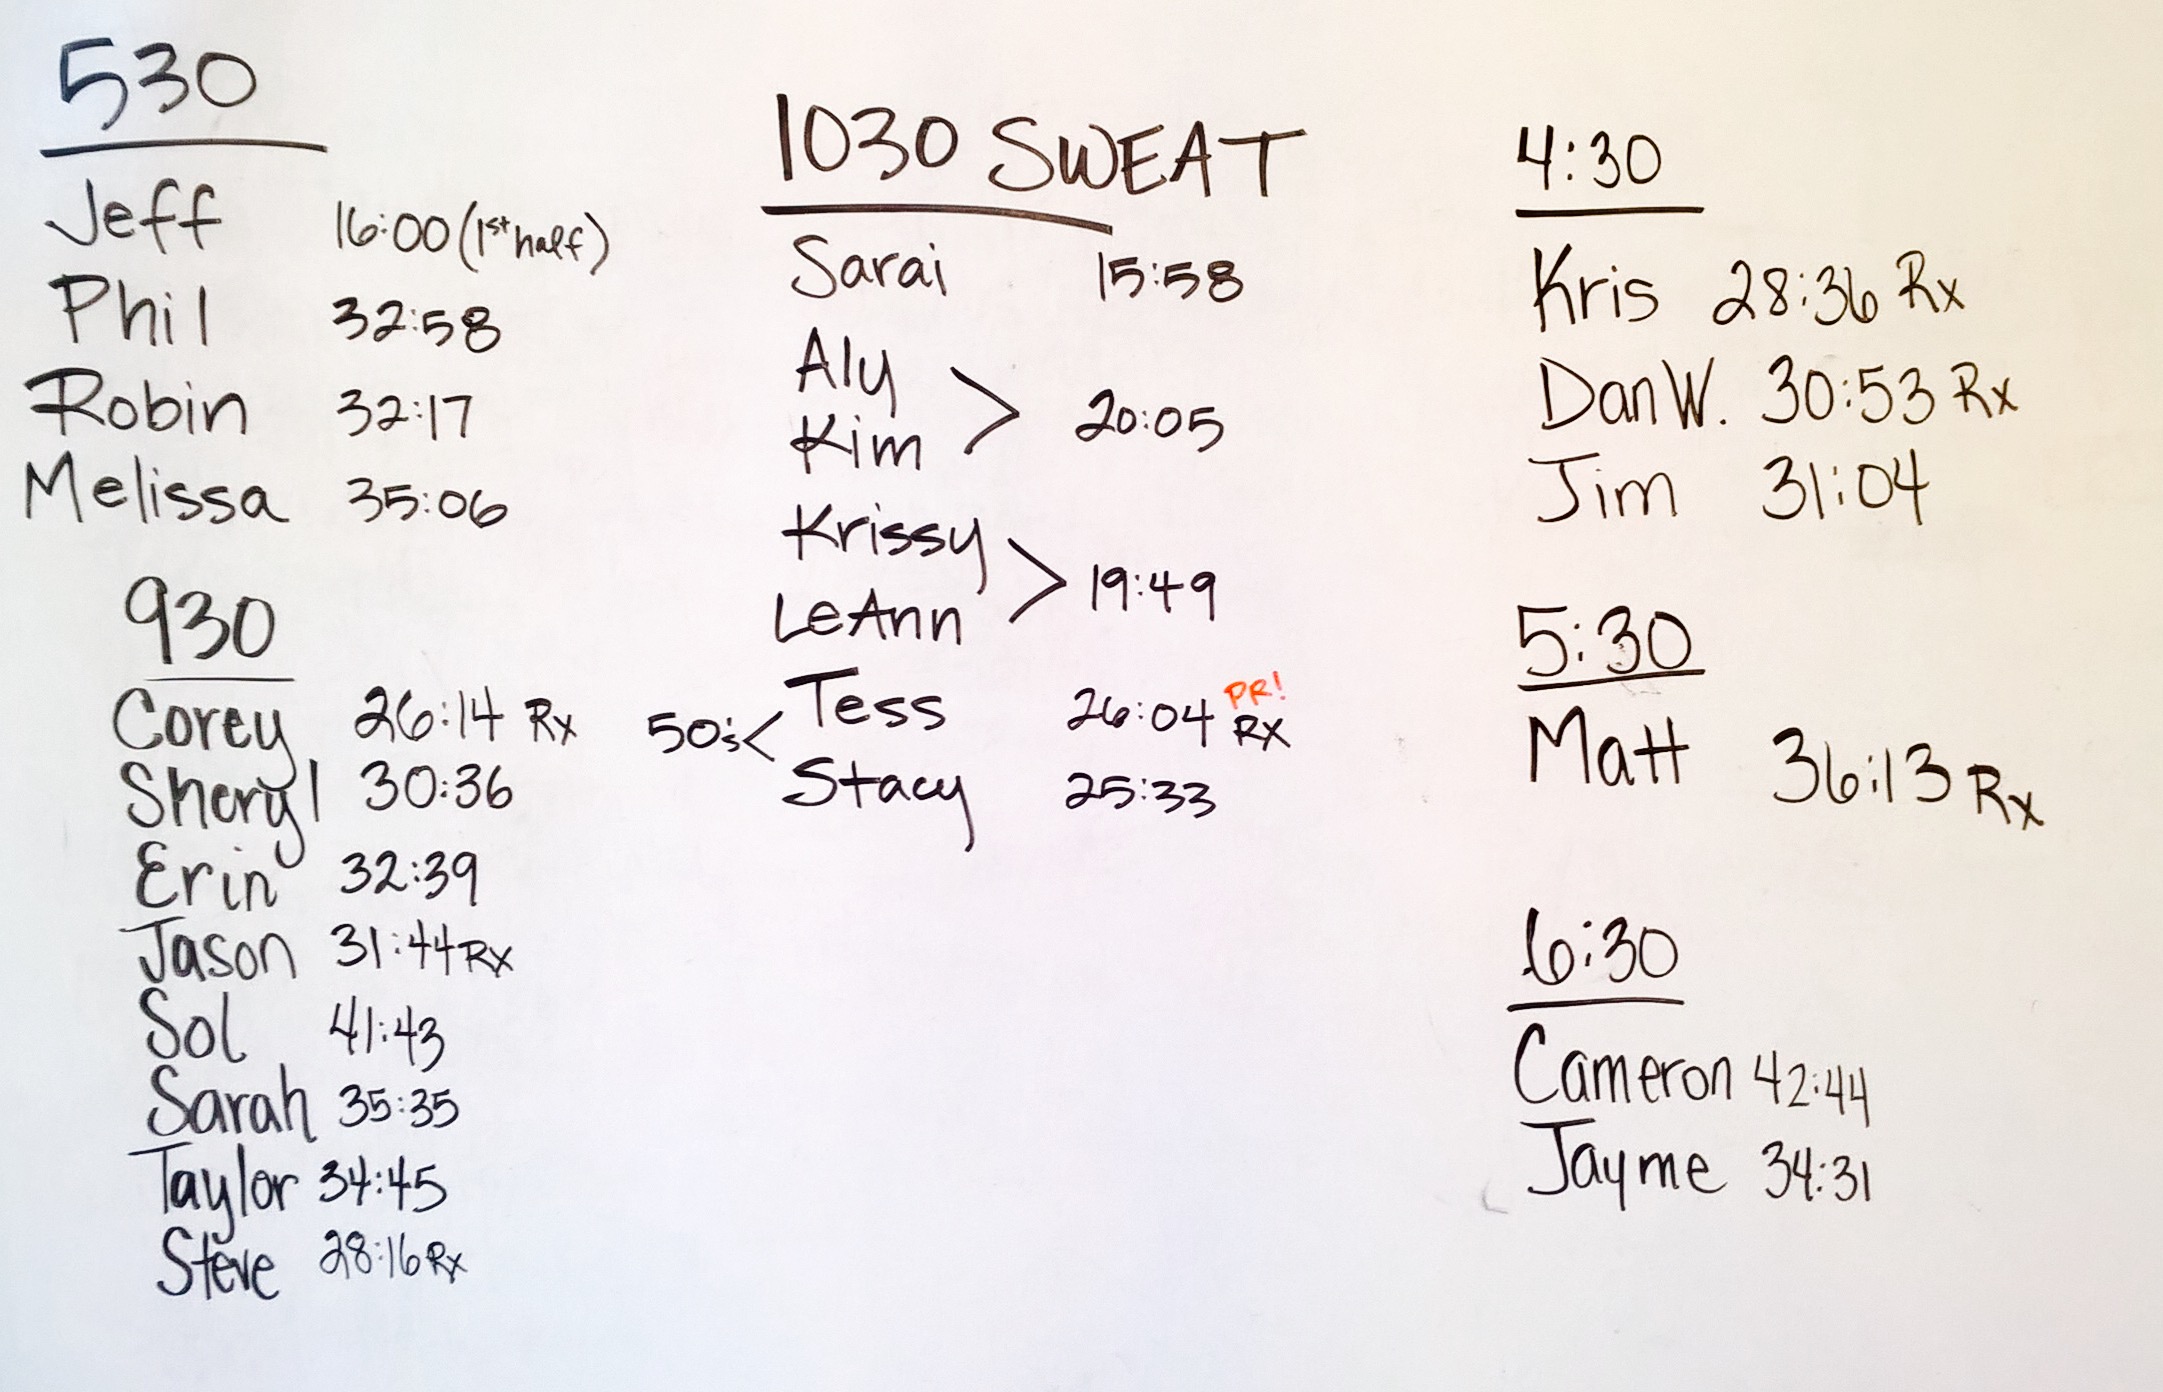 530
Jeff 16:00 (1st half)
Phil 32:58
Robin 32:17
Melissa 35:06
930
Corey 26:14 Rx
Sheryl 30:36
Erin 32:39
Jason 31:44 Rx
Sol 41:43
Sarah 35:35
Taylor 34:45
Steve 28:16 Rx
1030 SWEAT
Sarai 15:58
Aly
Kim > 20:05
Krissy
LeAnn > 19:49
PR!
50's < Tess 26:04 RX
Stacy 25:33
4:30
Kris 28:36 Rx
Dan W. 30:53 Rx
Jim 31:04
5:30
Matt 36:13 Rx
6:30
Cameron 42:44
Jayme 34:31